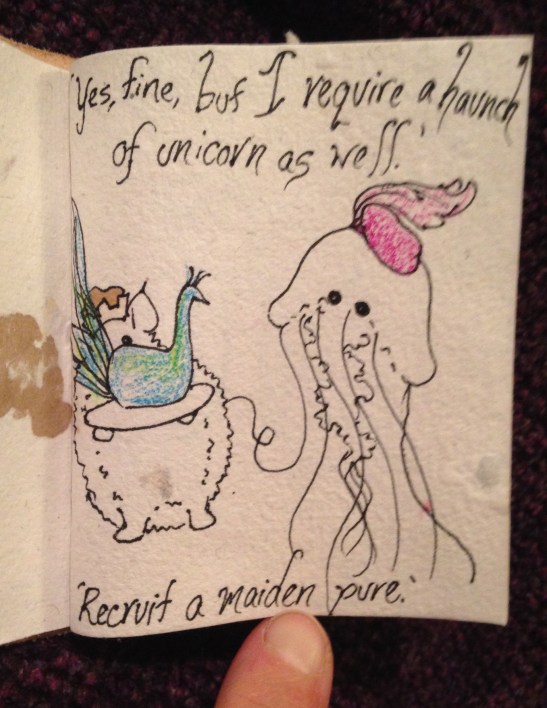 'Yes, fine, but I require a haunch
of unicorn as well.'
'Recruit a maiden pure.'